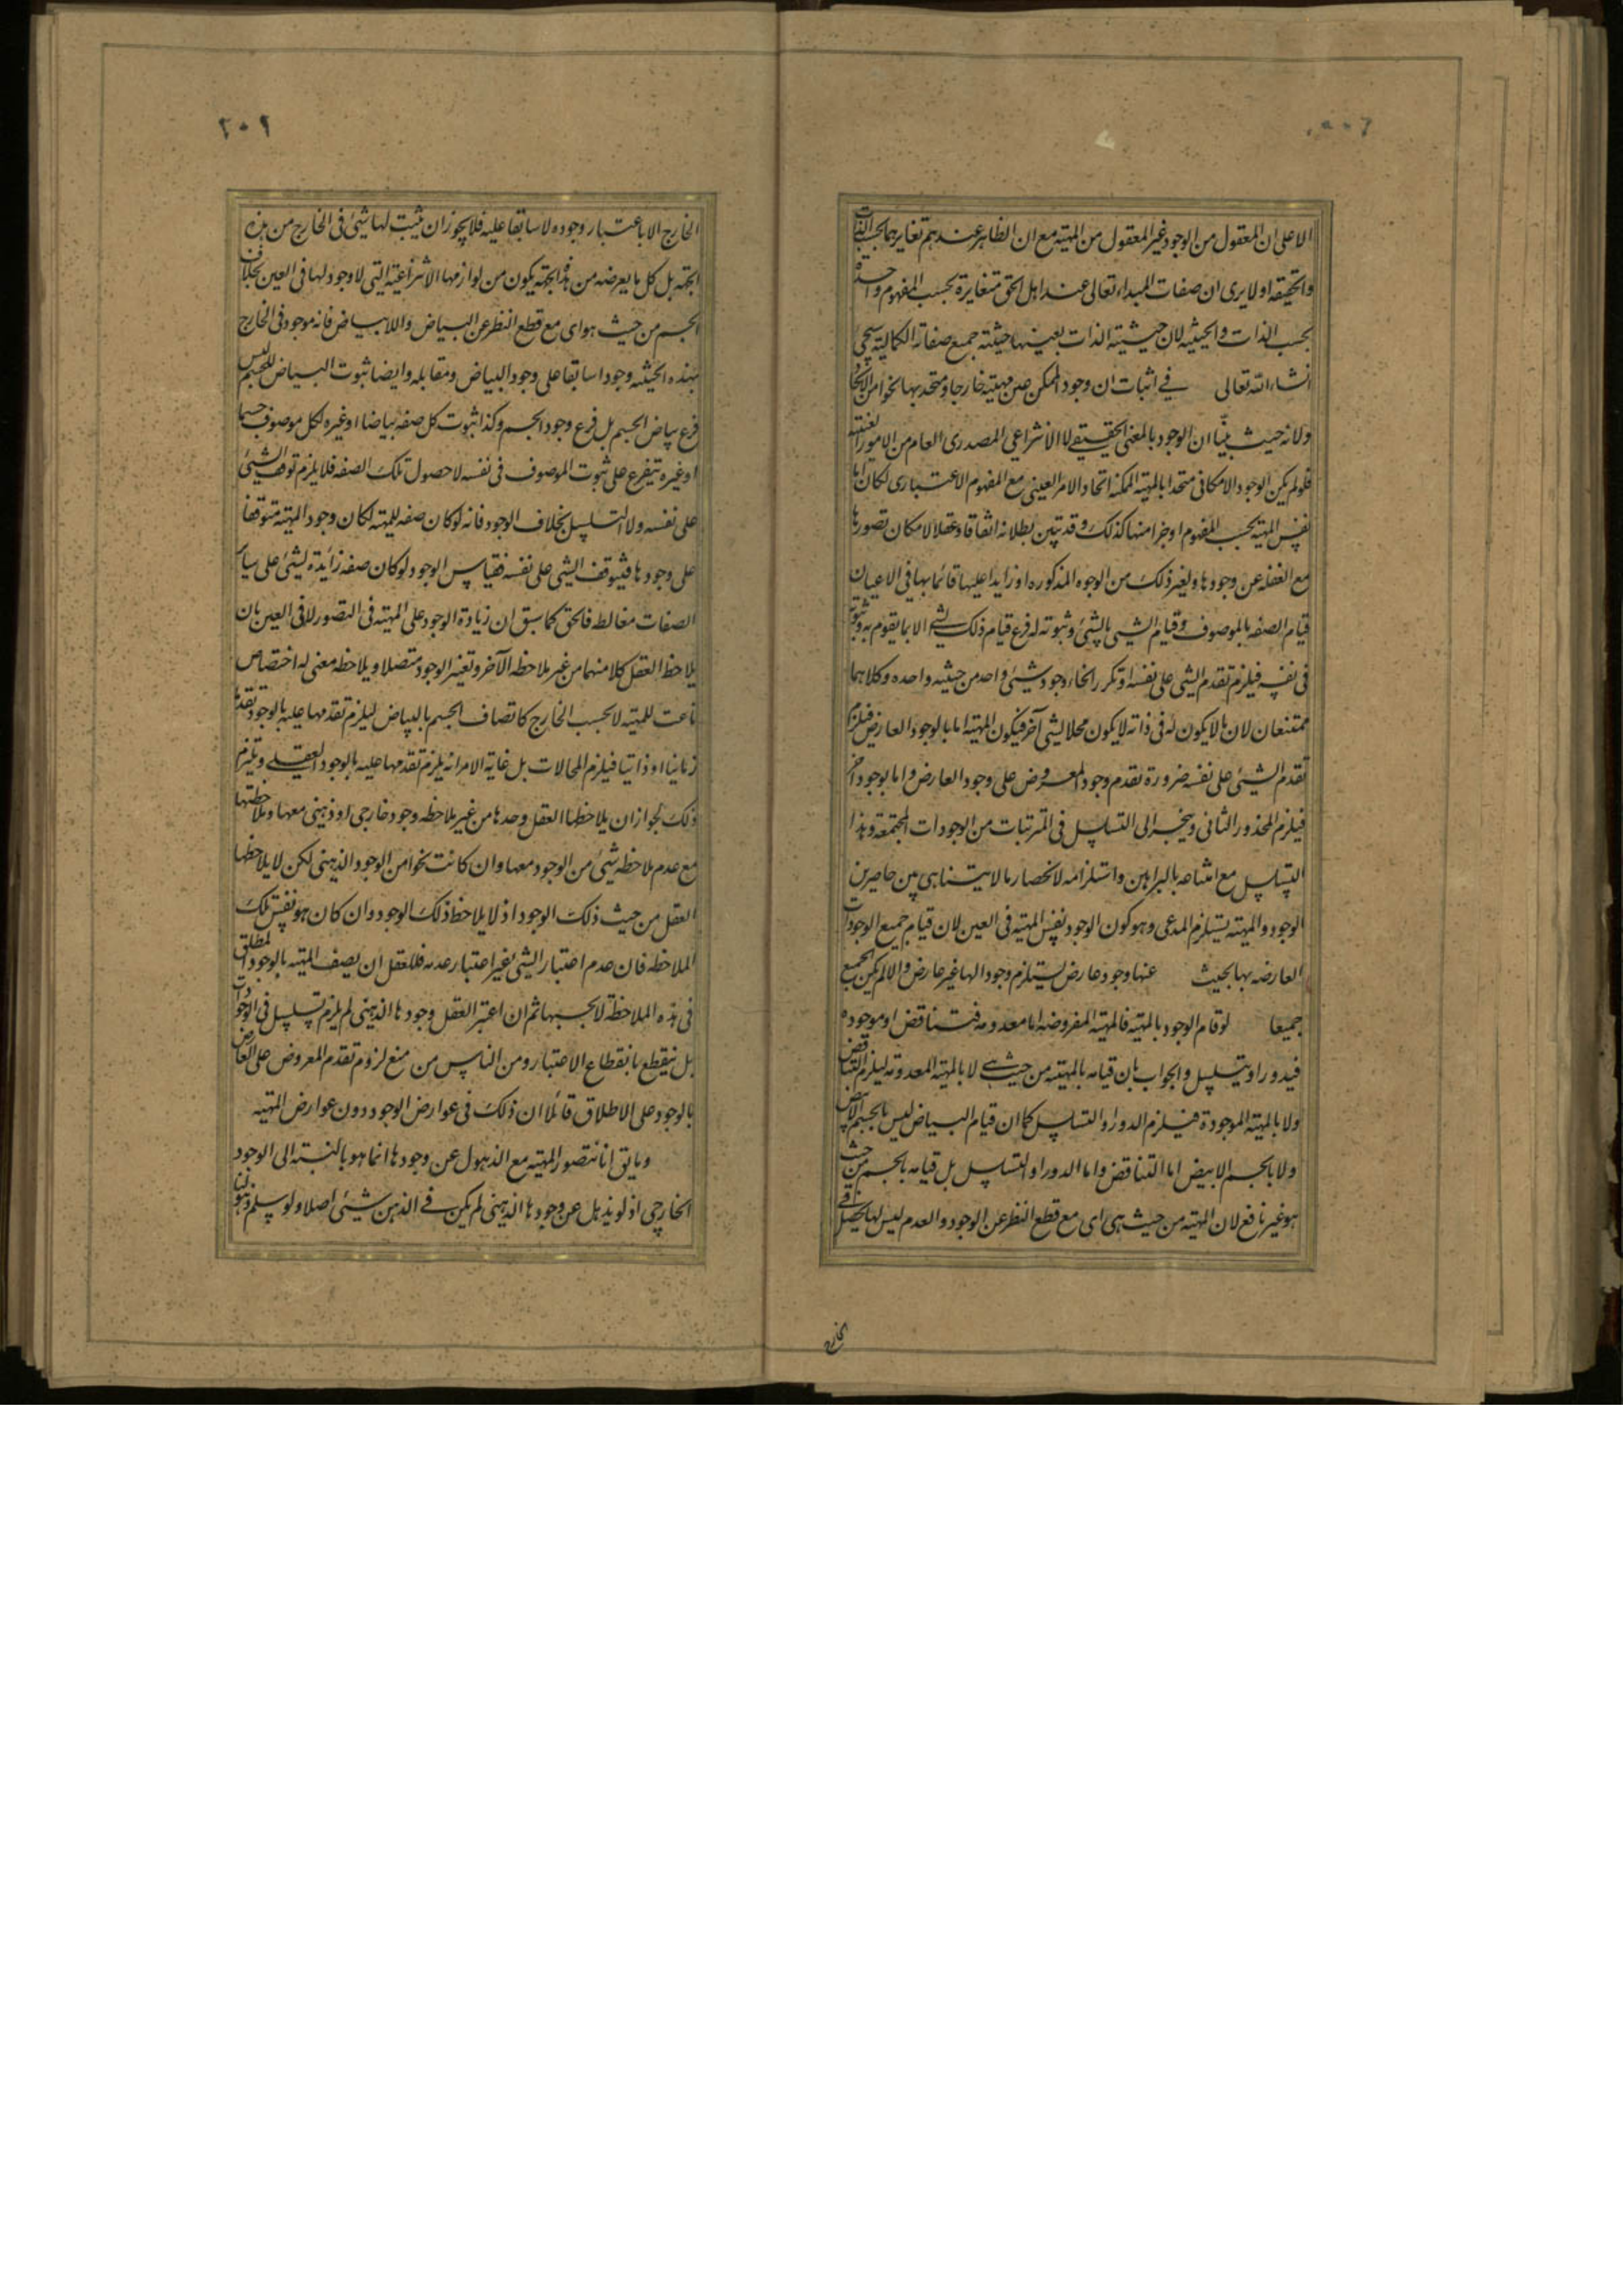 الا على ان المعقول من الوجود غير المعقول من المهية مع ان الظاهر عندهم تغايرهما بحسب الذات
والحقيقه اولا يرى ان صفات المبداء تعالى عند اهل الحق متغايرة بحسب المفهوم واحدة
بحسب الذات والحيثيه لان حيثية الذات بعينها حيثية جميع صفاته الكمالية كما سيجئ
انشاء الله تعالى في اثبات ان وجود الممكن عين مهيته خارجا ومتحد بها نحوا من الاتحاد
ولانه حيث بينا ان الوجود بالمعنى الحقيقے لا الانتزاعى المصدرى العام من الامور العينية
فلو لم يكن الوجود الامكانى متحدا بالمهية الممكنه اتحاد الامر العينى مع المفهوم الاعتبارى لكان اما
نفس المهية بحسب المفهوم او جزا منها كذلك وقد تبين بطلانه اتفاقا وعقلا لامكان تصورها
مع الغفله عن وجودها ولغير ذلك من الوجوه المذكوره او زايدا عليها قائما بها فى الاعيان
قيام الصفه بالموصوف وقيام الشيى بالشيئ وثبوته له فرع قيام ذلك الشے الا بما يقوم به وثبوته
فى نفسه فيلزم تقدم الشيى على نفسه او تكرر انحاء وجود شيئ واحد من حيثيه واحده وكلاهما
ممتنعان لان ما لا يكون له فى ذاته لا يكون محلا لشيى آخر فيكون المهية اما بالوجود العارض فيلزم
تقدم الشيئ على نفسه ضرورة تقدم وجود المعروض على وجود العارض واما بوجود آخر
فيلزم المحذور الثانى وينجر الى التسلسل فى المترتبات من الوجودات المجتمعة وهذا
التسلسل مع امتناعه بالبراهين واستلزامه لانحصار ما لا يتناهى بين حاصرين
الوجود والمهية يستلزم المدعى وهو كون الوجود نفس المهية فى العين لان قيام جميع الوجودات
العارضه بها بحيث عنها وجود عارض يستلزم وجودا لها غير عارض والا لم يكن الجميع
جميعا لو قام الوجود بالمهية فالمهية المفروضه اما معدومه فتناقض او موجوده
فيدور او يتسلسل والجواب بان قيامه بالمهية من حيث هے لا بالمهية المعدومة ليلزم التناقض
ولا بالمهية الموجودة فيلزم الدور او التسلسل كما ان قيام البياض ليس بالجسم اللاابيض
ولا بالجسم الابيض اما التناقض واما الدور او التسلسل بل قيامه بالجسم من حيث
هو غير نافع لان المهية من حيث هى اى مع قطع النظر عن الوجود والعدم ليس لها تحصل فے
الخارج
٢٠٢
الخارج الا باعتبار وجوده لا سابقا عليه فلا يجوز ان يثبت لها شيئ فى الخارج من هذه
الجهة بل كل ما يعرضه من هذه الجهة يكون من لوازمها الانتزاعية التى لا وجود لها فى العين بخلاف
الجسم من حيث هو اى مع قطع النظر عن البياض واللابياض فانه موجود فى الخارج
بهذه الحيثيه وجودا سابقا على وجود البياض ومقابله وايضا ثبوت البياض للجسم ليس
فرع بياض الجسم بل فرع وجود الجسم وكذا ثبوت كل صفه بياضا او غيره لكل موصوف جسما
او غيره يتفرع على ثبوت الموصوف فى نفسه لا حصول تلك الصفه فلا يلزم توقف الشيئ
على نفسه ولا التسلسل بخلاف الوجود فانه لو كان صفه للمهية لكان وجود المهية متوقفا
على وجودها فيتوقف الشيى على نفسه فقياس الوجود لو كان صفه زائدة لشيئ على ساير
الصفات مغالطه فالحق كما سبق ان زيادة الوجود على المهية فى التصور لا فى العين بان
يلاحظ العقل كلا منهما من غير ملاحظه الآخر وتعتبر الوجود متصلا ويلاحظه معنى له اختصاص
ناعت للمهية لا بحسب الخارج كاتصاف الجسم بالبياض ليلزم تقدمها عليه بالوجود تقدما
زمانيا او ذاتيا فيلزم المحالات بل غاية الامر انه يلزم تقدمها عليه بالوجود العقلے ويلتزم
ذلك لجواز ان يلاحظها العقل وحدها من غير ملاحظه وجود خارجى او ذهنى معها وملاحظتها
مع عدم ملاحظه شيئ من الوجود معها وان كانت نحوا من الوجود الذهنى لكن لا يلاحظها
العقل من حيث ذلك الوجود اذ لا يلاحظ ذلك الوجود وان كان هو نفس تلك
الملاحظه فان عدم اعتبار الشيى غير اعتبار عدمه فللعقل ان يصف المهية بالوجود المطلق
فى هذه الملاحظة لا بحسبها ثم ان اعتبر العقل وجودها الذهنى لم يلزم تسلسل فى الوجودات
بل ينقطع بانقطاع الاعتبار ومن الناس من منع لزوم تقدم المعروض على العارض
بالوجود على الاطلاق قائلا ان ذلك فى عوارض الوجود دون عوارض المهية
وما يق انا نتصور المهية مع الذهول عن وجودها انما هو بالنسبة الى الوجود
الخارجى اذ لو يذهل عن وجودها الذهنى لم يكن فے الذهن شيئ اصلا ولو سلم ذهولنا